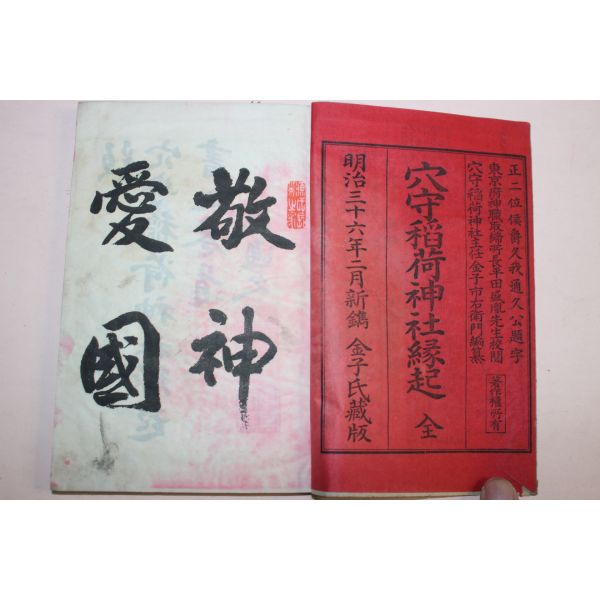 正二位侯爵久我通久公題字
東京府神職取締所長平田盛胤先生校閲
穴守稲荷神社主任金子市右衛門編纂
著作権所有
穴守稲荷神社縁起 全
明治三十六年二月新鐫 金子氏蔵版
敬神
愛國